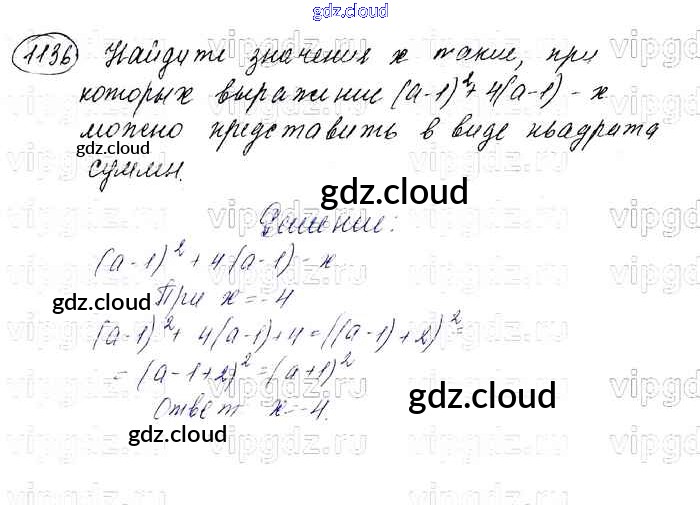 gdz.cloud
1136 Найдите значения x такие, при
которых выражение (a-1)²+4(a-1)-x
можно представить в виде квадрата
суммы.
gdz.cloud
gdz.cloud
Решение:
(a-1)²+4(a-1)-x
При x=-4
gdz.cloud
(a-1)²+4(a-1)+4=((a-1)+2)²=
=(a-1+2)²=(a+1)²
Ответ x=-4.
gdz.cloud
gdz.cloud